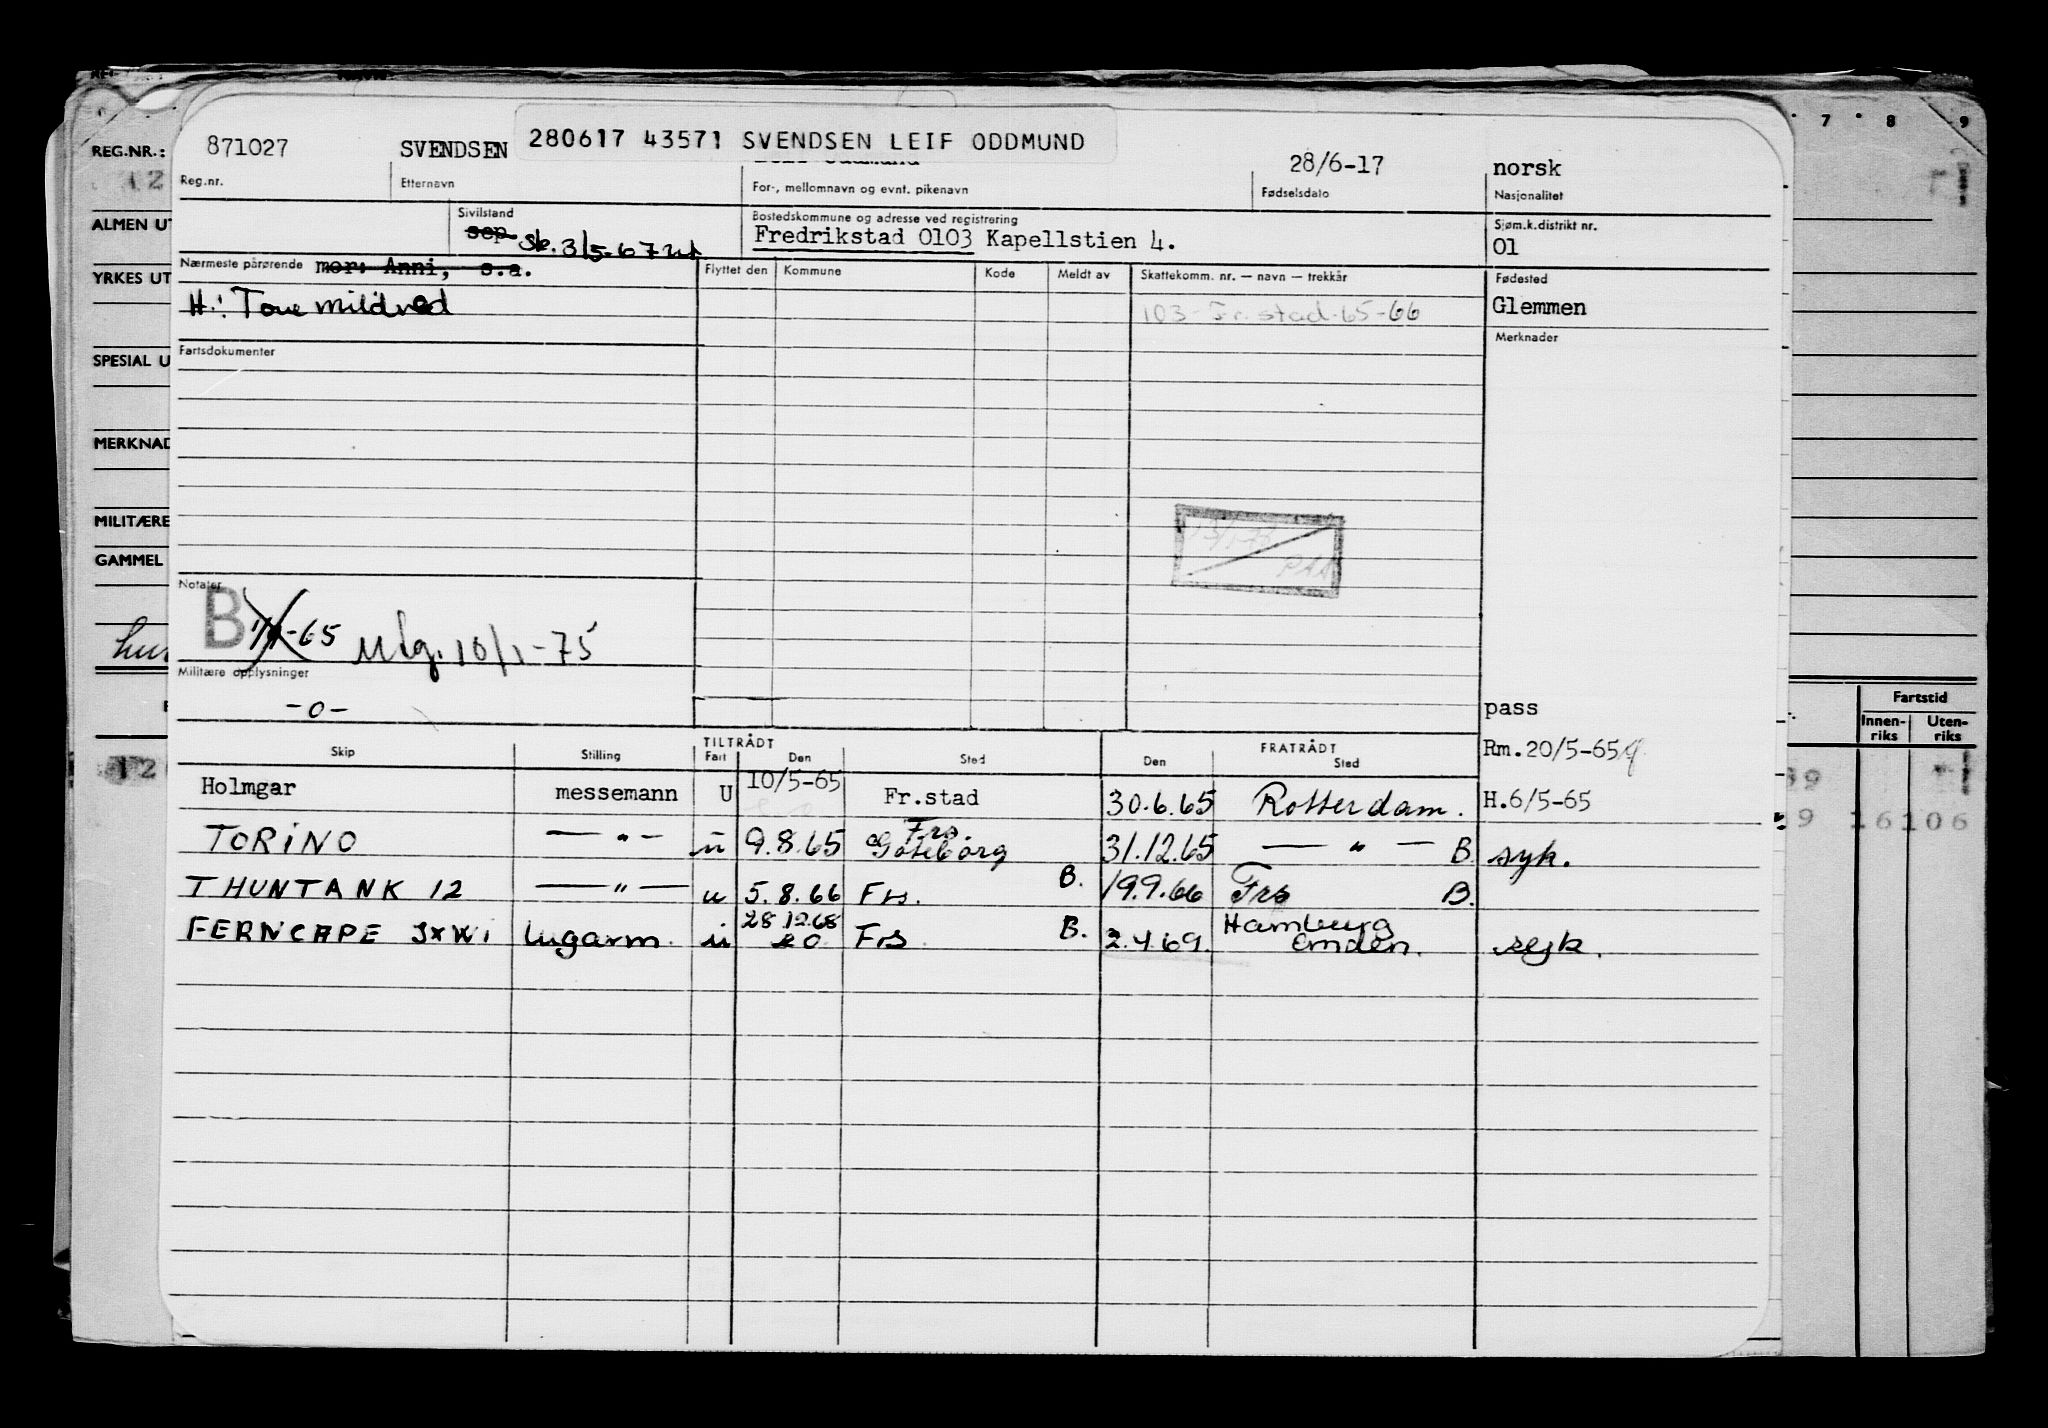 7 8 9
REG.NR.:
12
ALMEN UT
YRKES UT
SPESIAL U
MERKNAD
MILITÆRE
GAMMEL
871027 SVENDSEN 280617 43571 SVENDSEN LEIF ODDMUND 28/6-17 norsk
Reg.nr. Etternavn For-, mellomnavn og evnt. pikenavn Fødselsdato Nasjonalitet
Sivilstand Bostedskommune og adresse ved registrering Sjøm.k.distrikt nr.
sep. Sk. 3/5-67 Fredrikstad 0103 Kapellstien 4. 01
Nærmeste pårørende mor: Anni, s.a. Flyttet den Kommune Kode Meldt av Skattekomm. nr. — navn — trekkår Fødested
H: Tove Mildred 103 Fr.stad-65-66 Glemmen
Fartsdokumenter Merknader
Notater
B 65 Mlg. 10/1-75
Militære opplysninger
-o- pass
Fartstid
Innen-riks Uten-riks
TILTRÅDT FRATRÅDT Rm.20/5-65
Skip Stilling Fart Den Sted Den Sted
Holmgar messemann U 10/5-65 Fr.stad 30.6.65 Rotterdam. H.6/5-65
TORINO — " — u 9.8.65 Frs. Göteborg 31.12.65 — " — B syk.
16106
THUNTANK 12 — " — u 5.8.66 Frs. B. 19.9.66 Frs B.
FERNCAPE JXWI lugarm. u 28.12.68 Frs B. 2.4.69. Hamburg Emden. syk.